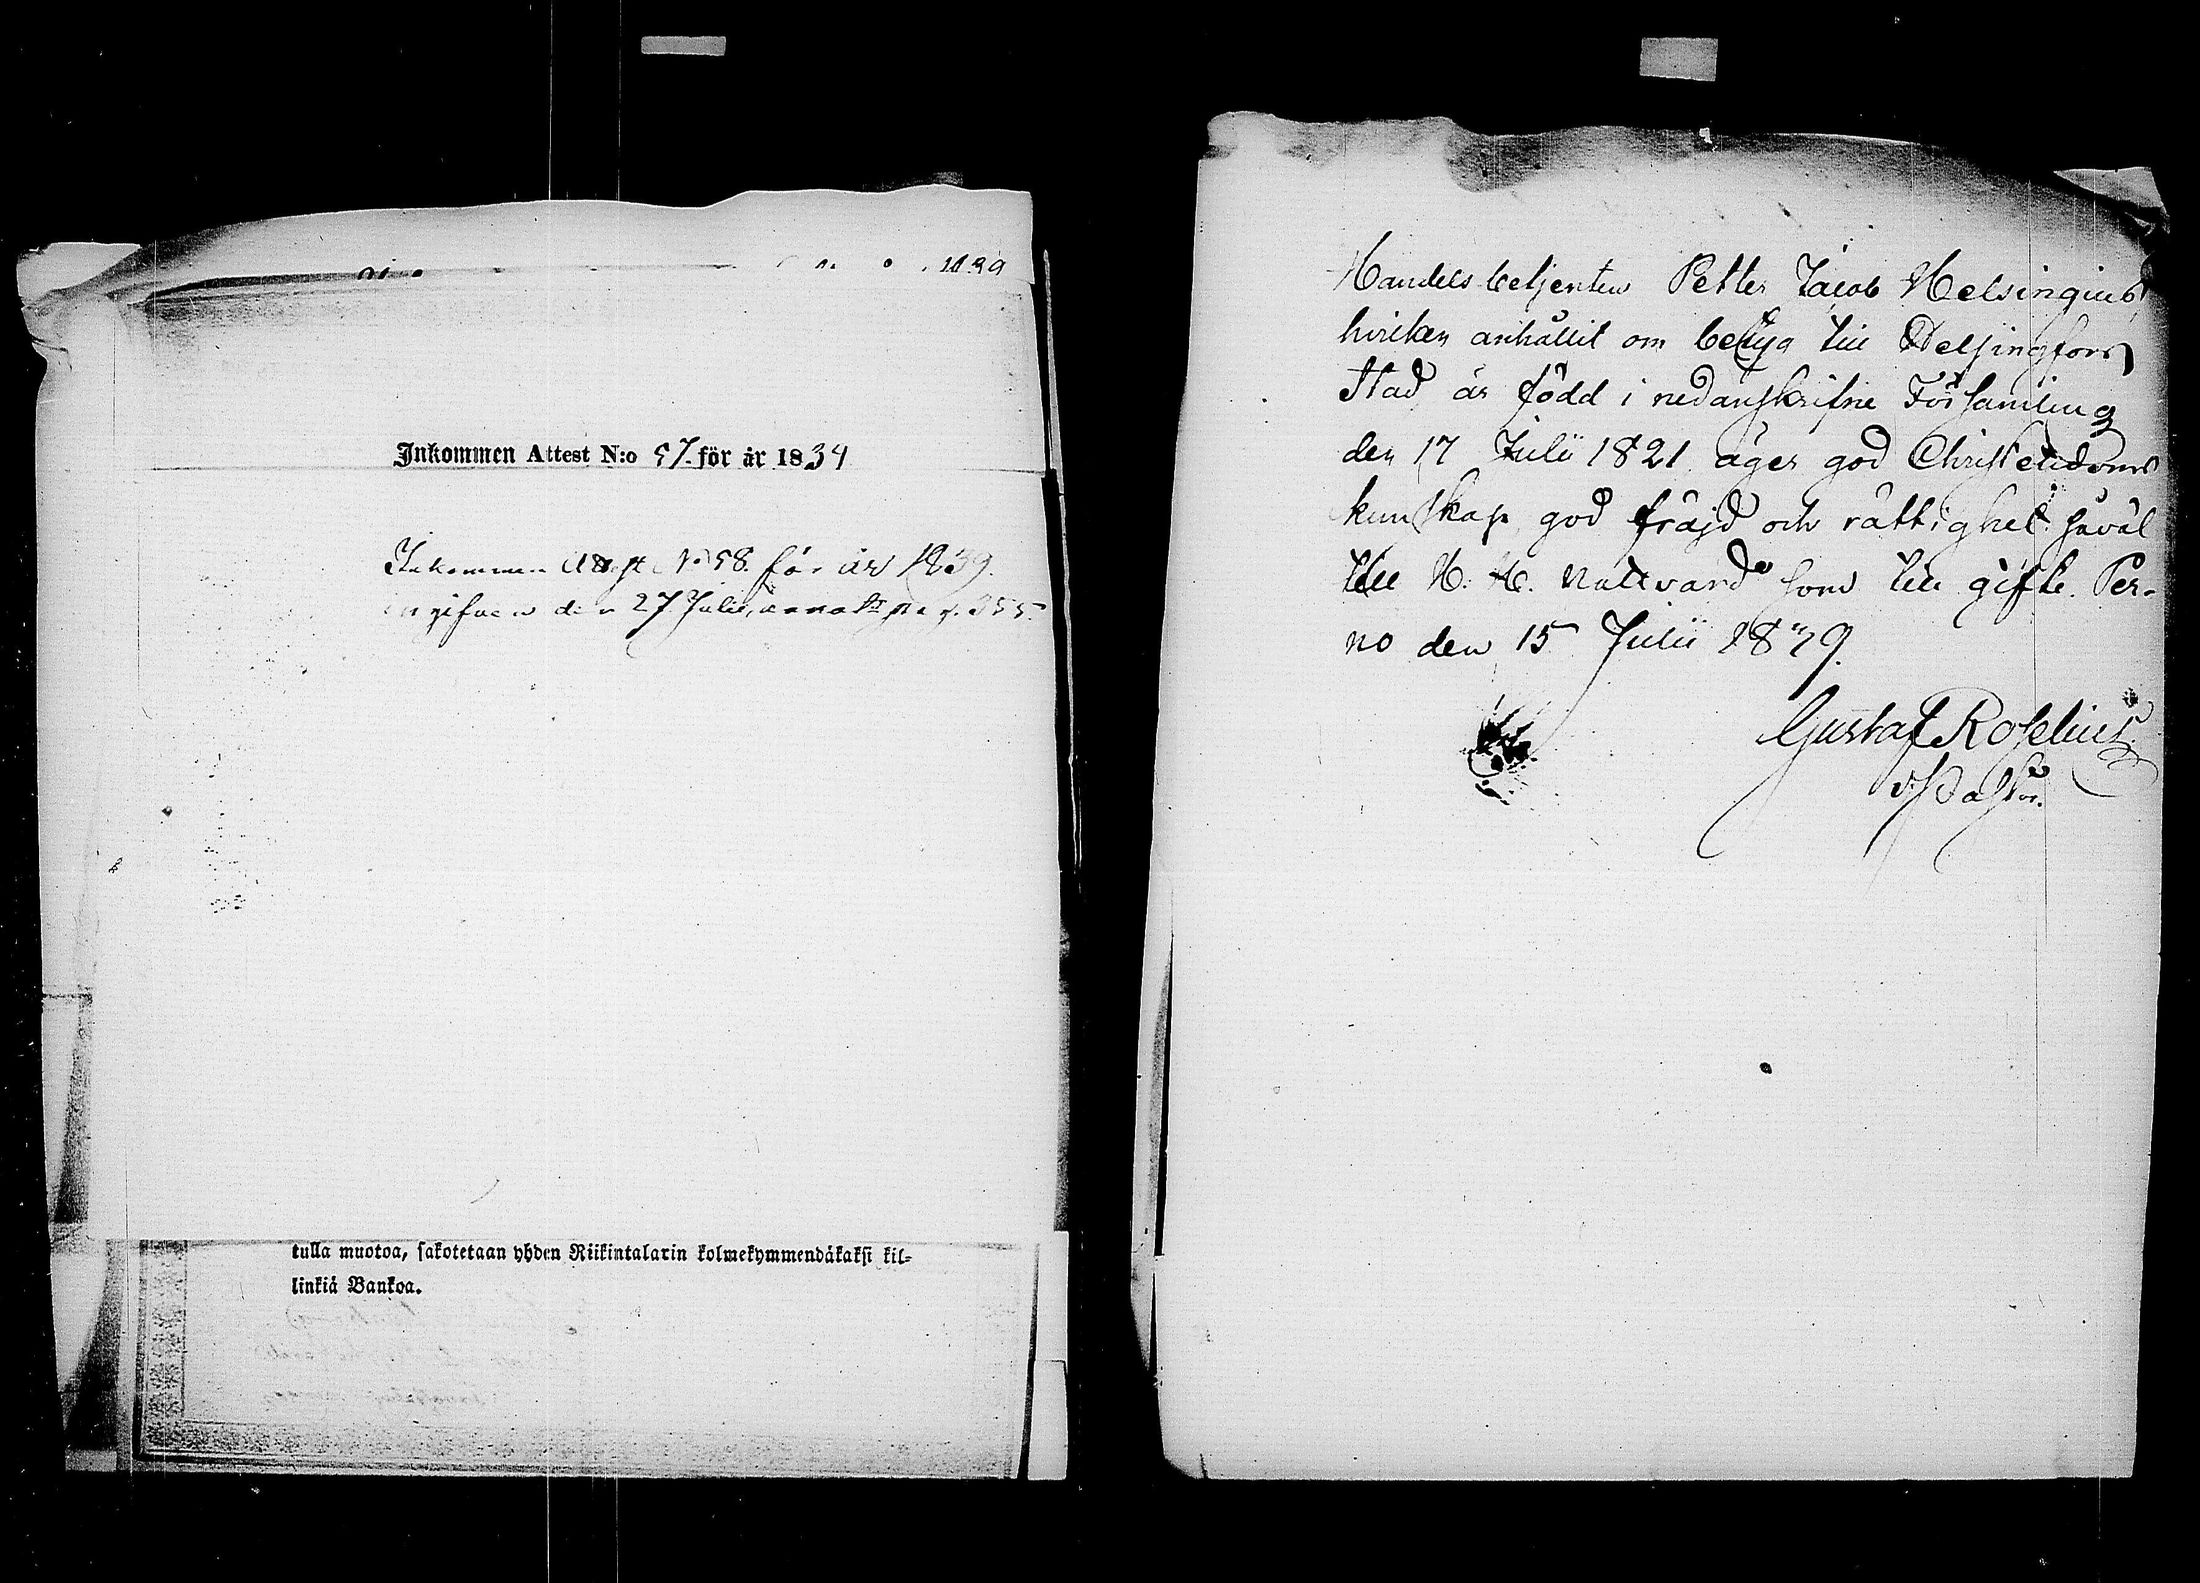 1839
Inkommen Attest N:o 57 för år 1834
Inkommen Attest No 58. för år 1839.
ingifven den 27 Julii, pag. 355.
tulla muotoa, sakotetaan yhden Riikintalarin kolmekymmendäkaksi kil-
linkiä Bankoa.
Handels betjenten Petter Jacob Helsingius
hvilken anhållit om betyg till Helsingfors
Stad är född i nedanskrifne Församling
den 17 Julii 1821 äger god Christendoms
kunskap, god fräjd och rättighet såväl
till H. H. Nattvard som till gifte. Per-
no den 15 Julii 1839.
Gustaf Roselius
v. Pastor.